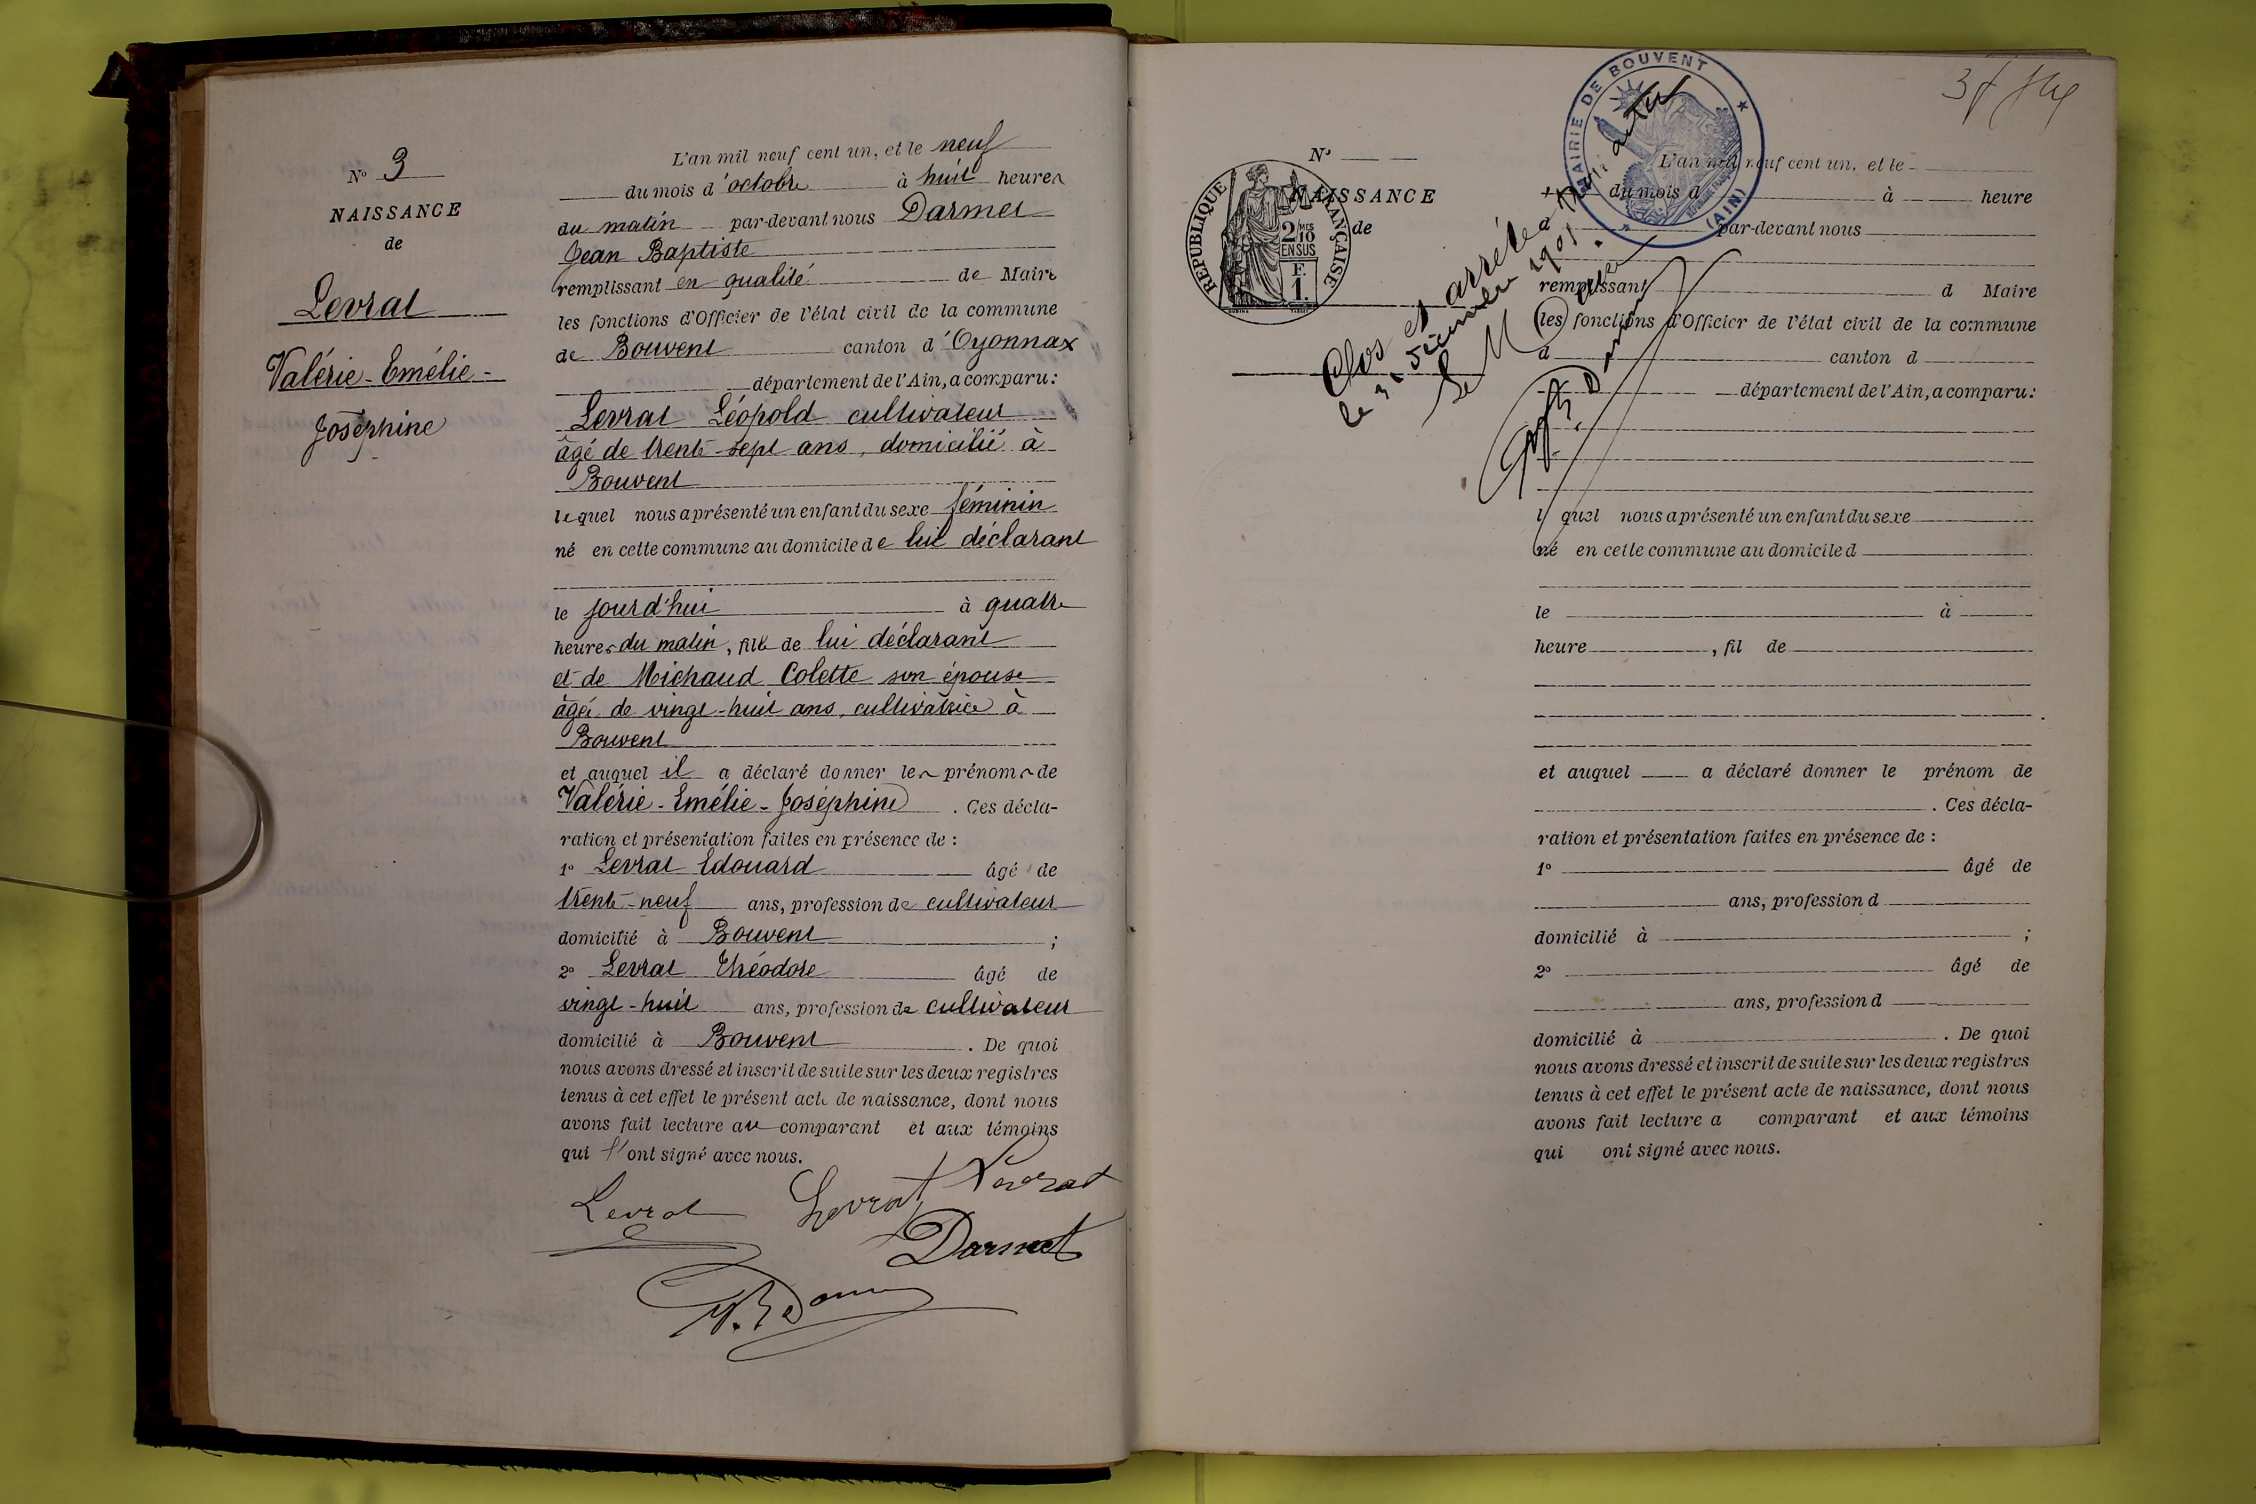 N° 3
NAISSANCE
de
Levrat
Valérie-Emélie-
Joséphine
L'an mil neuf cent un, et le neuf
du mois d'octobre à huit heures
du matin par-devant nous Darmet
Jean Baptiste
remplissant en qualité de Maire
les fonctions d'Officier de l'état civil de la commune
de Bouvent canton d'Oyonnax
département de l'Ain, a comparu:
Levrat Léopold cultivateur
âgé de trente-sept ans, domicilié à
Bouvent
lequel nous a présenté un enfant du sexe féminin
né en cette commune au domicile de lui déclarant
le jourd'hui à quatre
heures du matin, fille de lui déclarant
et de Michaud Colette son épouse
âgée de vingt-huit ans, cultivatrice à
Bouvent
et auquel il a déclaré donner les prénoms de
Valérie-Emélie-Joséphine. Ces décla-
ration et présentation faites en présence de:
1° Levrat Edouard âgé de
trente-neuf ans, profession de cultivateur
domicilié à Bouvent;
2° Levrat Théodore âgé de
vingt-huit ans, profession de cultivateur
domicilié à Bouvent. De quoi
nous avons dressé et inscrit de suite sur les deux registres
tenus à cet effet le présent acte de naissance, dont nous
avons fait lecture au comparant et aux témoins
qui l'ont signé avec nous.
Levrat Levrat Levrat
Darmet
MAIRIE DE BOUVENT
(AIN)
RÉPUBLIQUE FRANÇAISE
2/10 MES
EN SUS
F.
1.
N°
NAISSANCE
de
Clos et arrêté
le 31 décembre 1901.
Le Maire
L'an mil neuf cent un, et le
du mois d à heure
d par-devant nous
remplissant d Maire
les fonctions d'Officier de l'état civil de la commune
d canton d
département de l'Ain, a comparu:
l quel nous a présenté un enfant du sexe
né en cette commune au domicile d
le à
heure, fil de
et auquel a déclaré donner le prénom de
. Ces décla-
ration et présentation faites en présence de:
1° âgé de
ans, profession d
domicilié à ;
2° âgé de
ans, profession d
domicilié à . De quoi
nous avons dressé et inscrit de suite sur les deux registres
tenus à cet effet le présent acte de naissance, dont nous
avons fait lecture a comparant et aux témoins
qui ont signé avec nous.